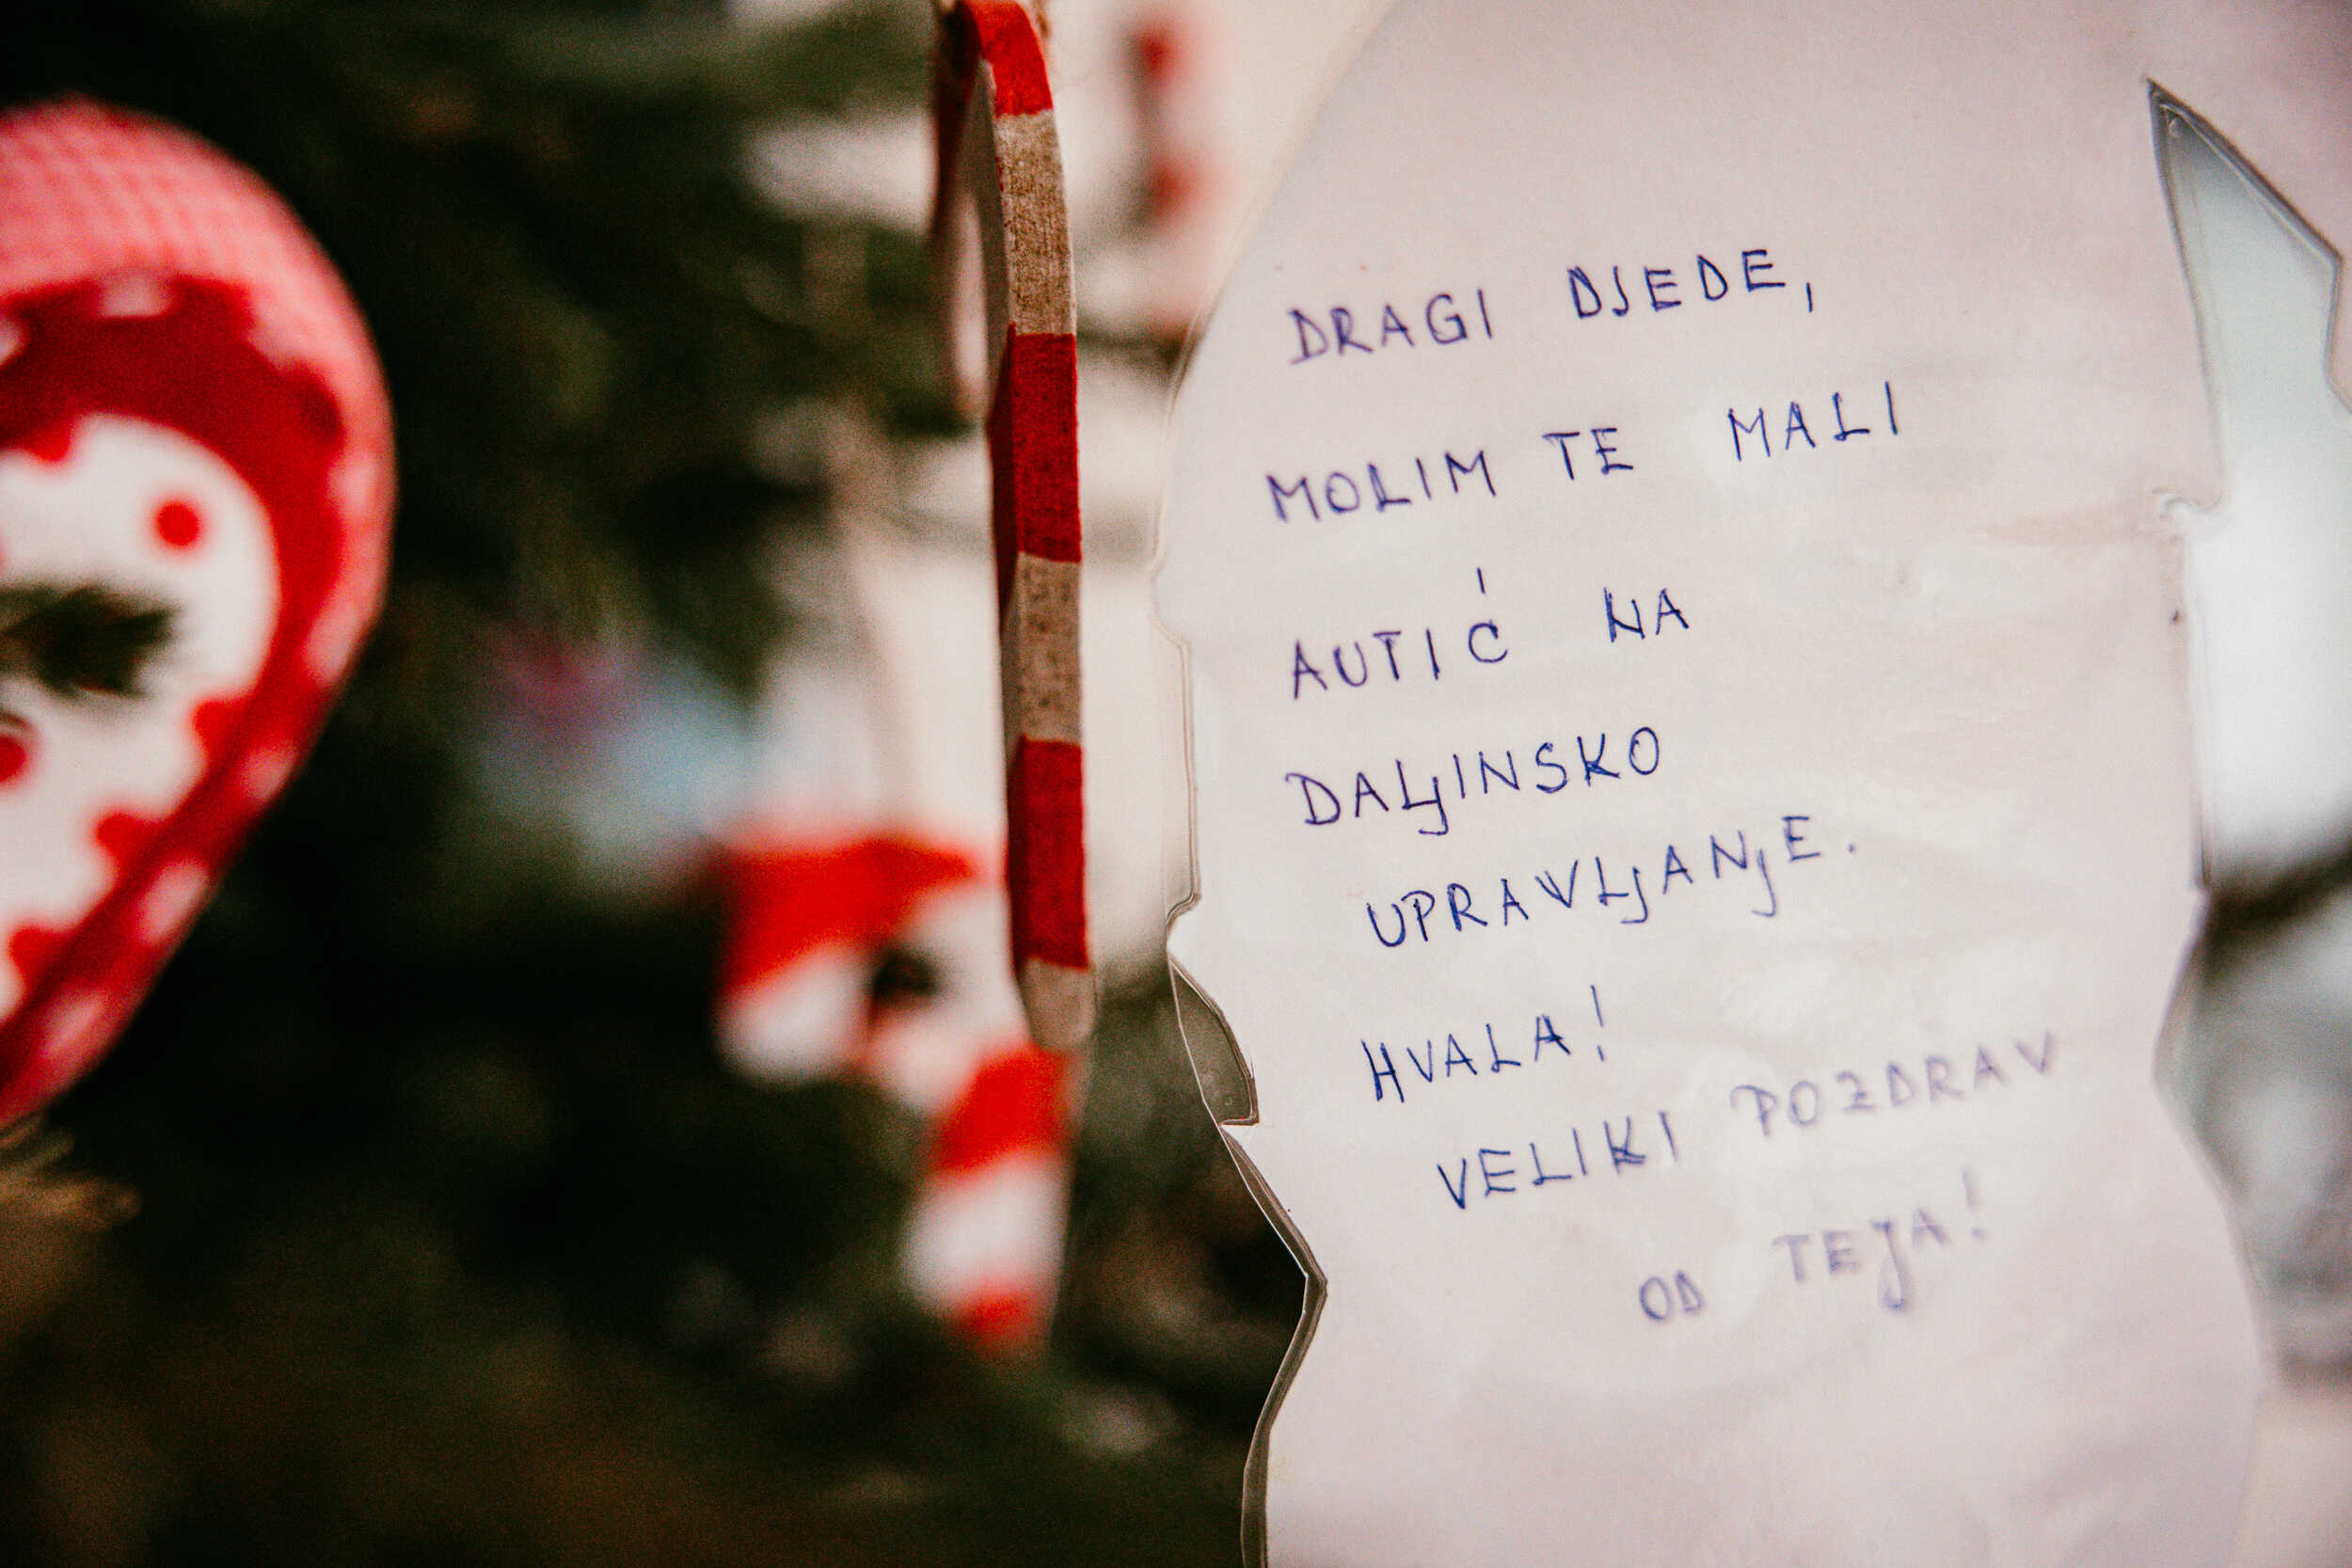 DRAGI DJEDE,
MOLIM TE MALI
AUTIĆ NA
DALJINSKO
UPRAVLJANJE.
HVALA!
VELIKI POZDRAV
OD TEJA!